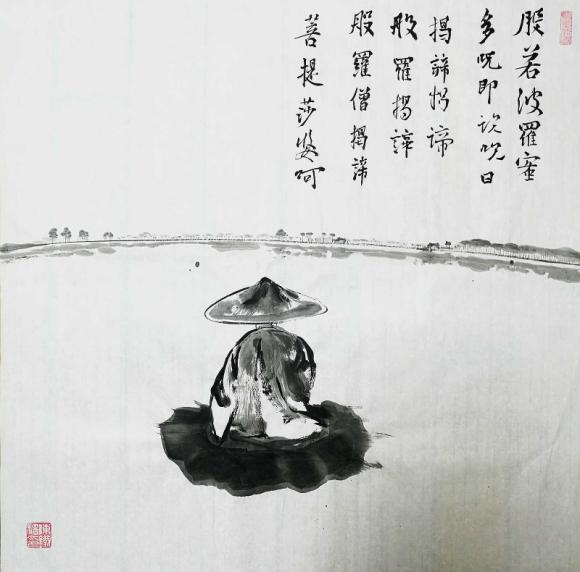 般若波羅蜜
多呪即說呪曰
揭諦揭諦
般羅揭諦
般羅僧揭諦
菩提莎婆呵